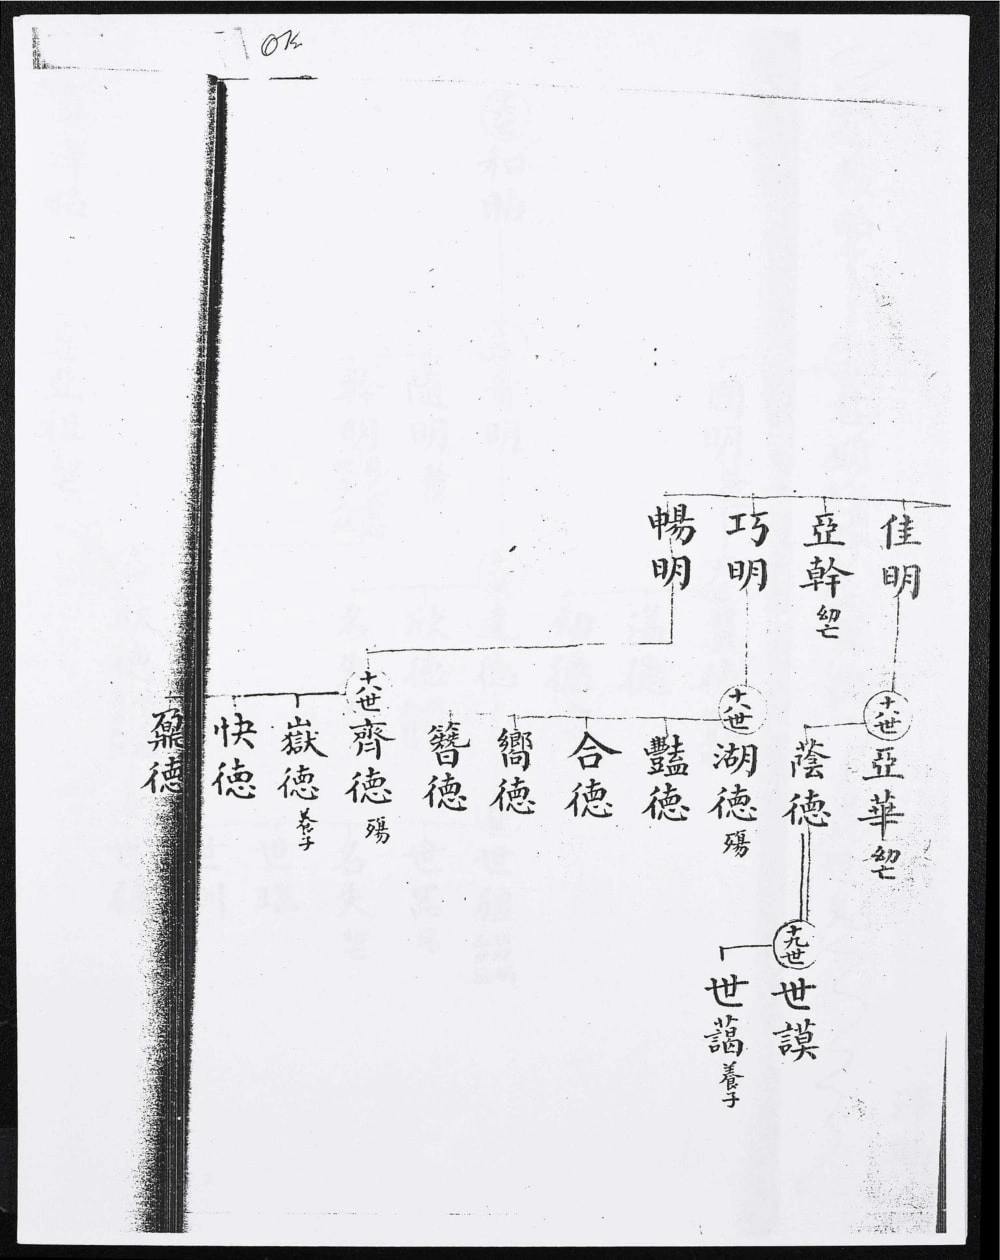 OK
佳明
亞幹 幼亡
巧明
暢明
十八世
亞華 幼亡
蔭德
十八世
湖德 殤
豔德
合德
嚮德
簪德
十八世
齊德 殤
嶽德 養子
快德
鼐德
十九世
世謨
世藹 養子